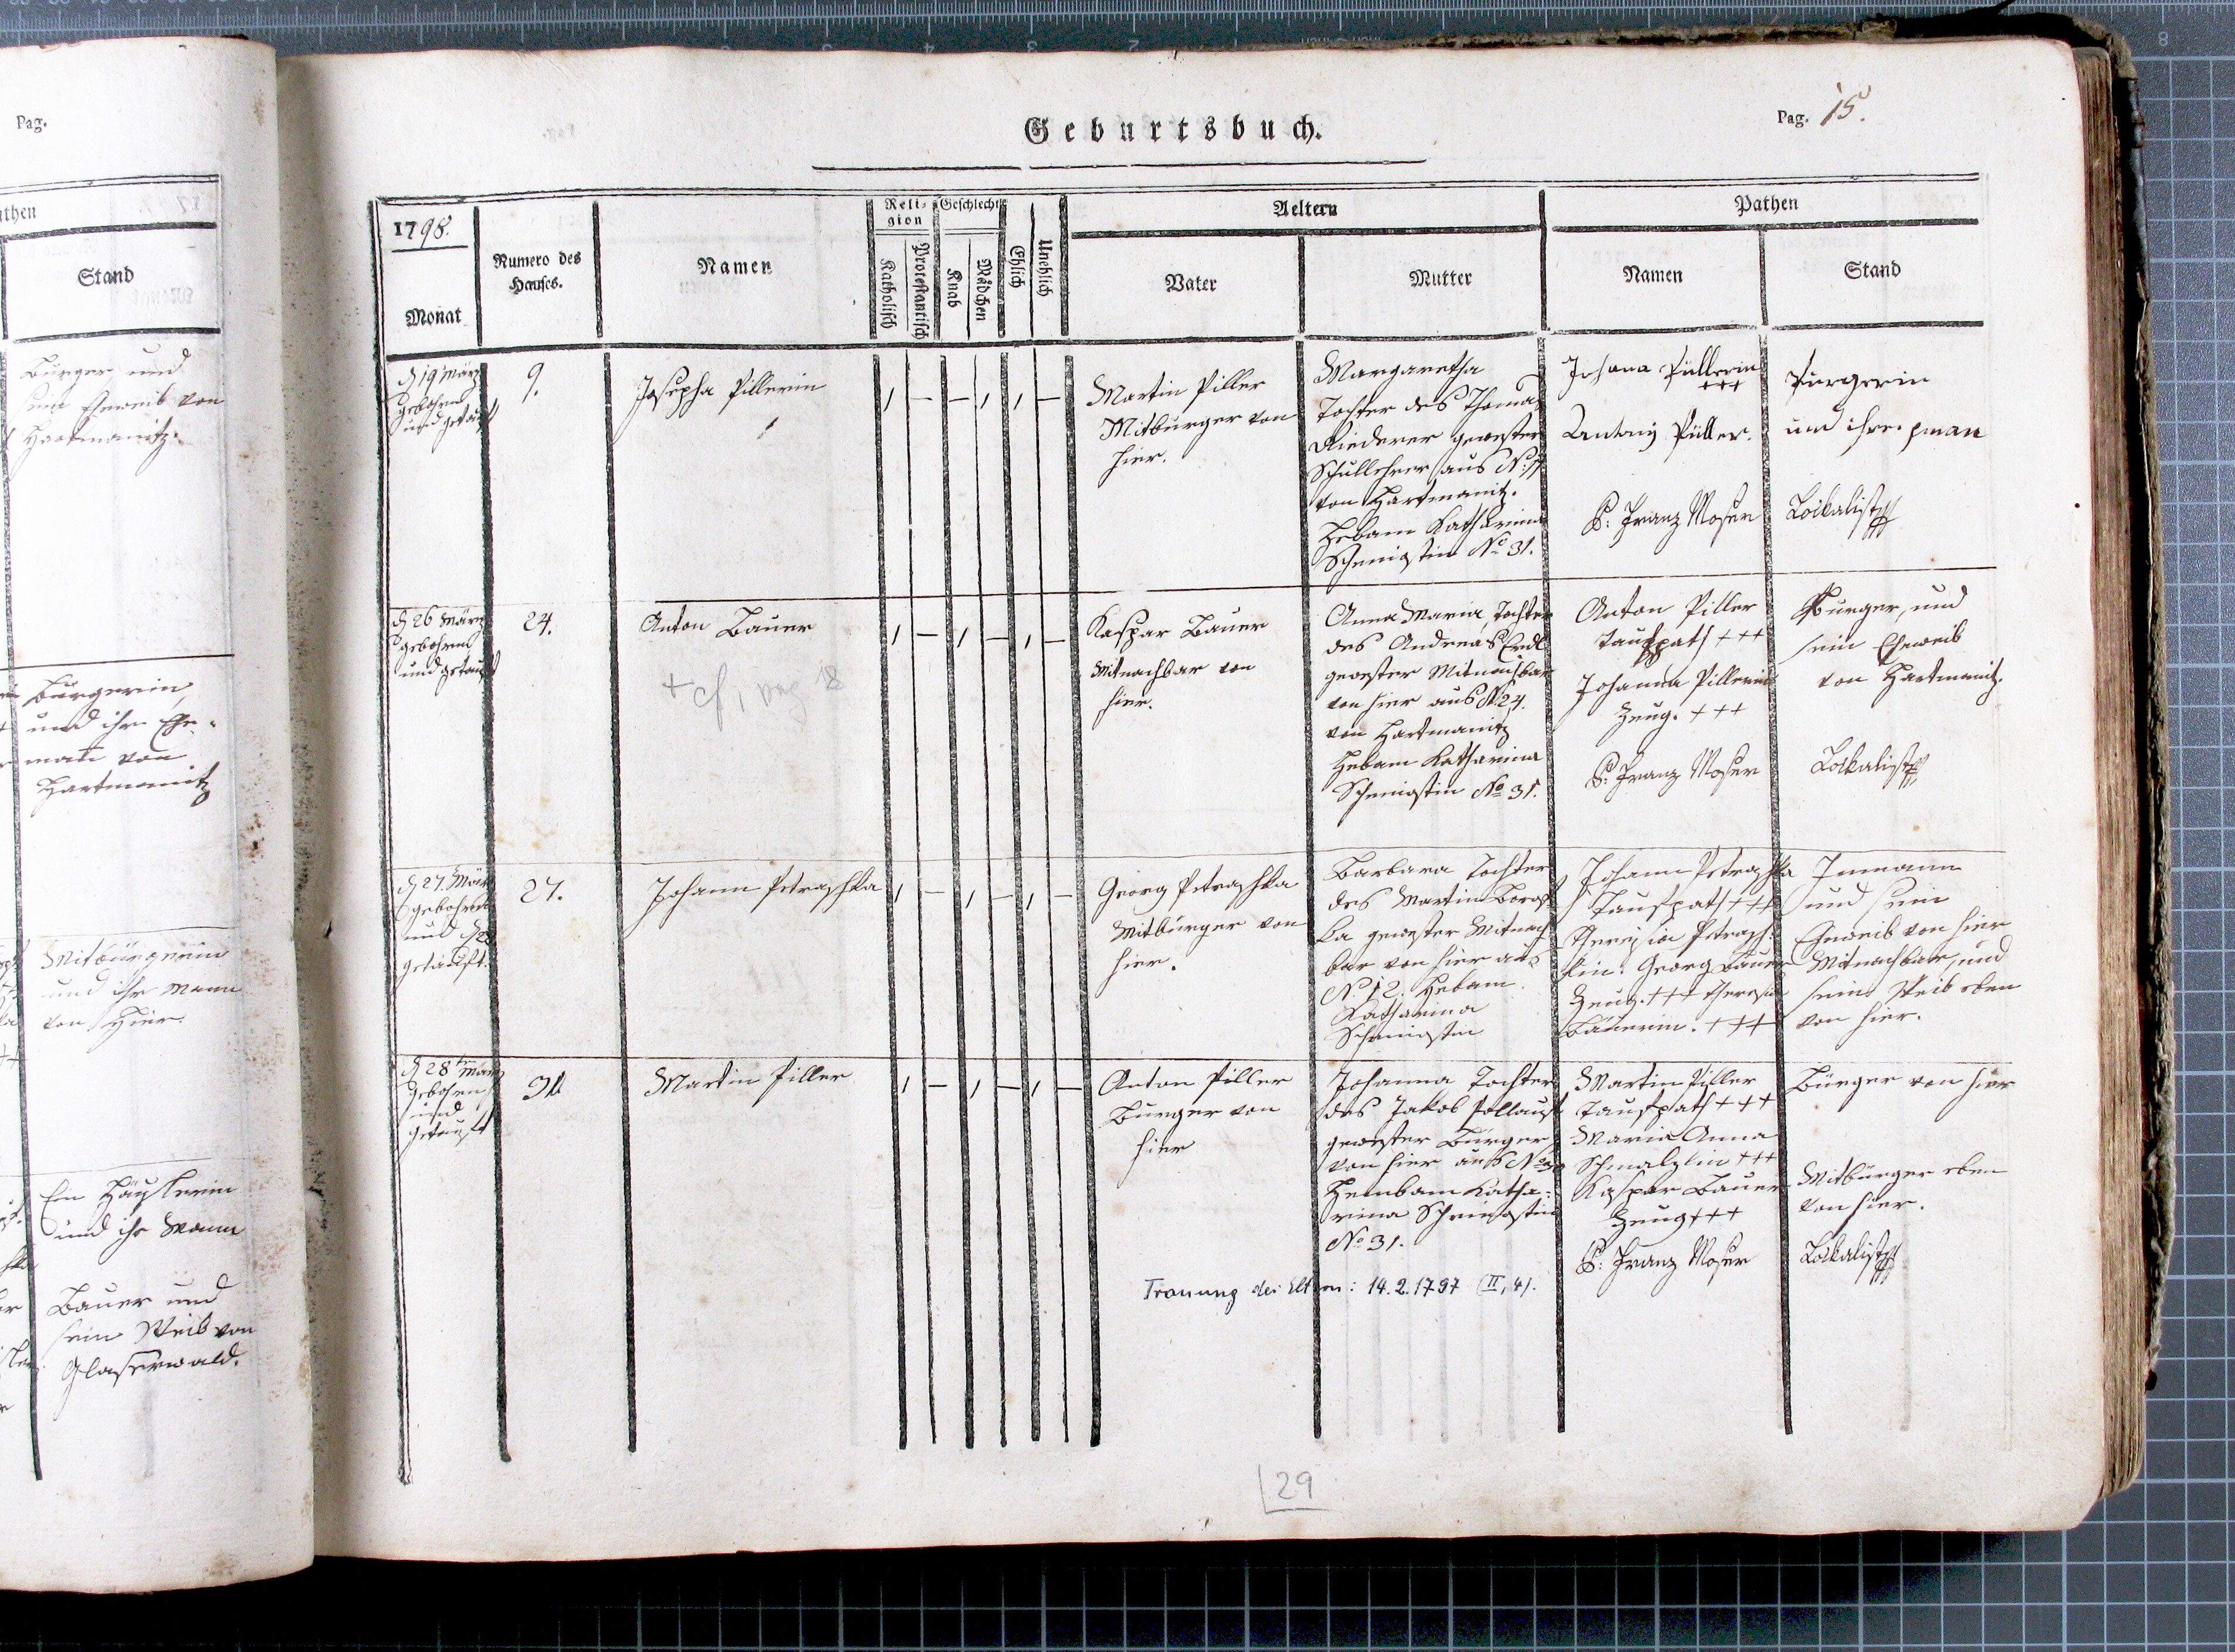 Pag.
athen
Stand
Bürger und
sein Eheweib von
Hartmanitz.
Bürgerin,
und ihr Ehe-
mann von
Hartmanitz
Mitbürgerin
und ihr Mann
von Hier.
Ein Häuslerin
und ihr Mann
Bauer und
sein Weib von
Glaserwald.
Geburtsbuch.
Pag. 15.
1798.
Monat
Numero des
Hauses.
Namen
Reli-
gion
Katholisch
Protestantisch
Geschlecht
Knab
Mädchen
Ehlich
Unehlich
Aeltern
Vater
Mutter
Pathen
Namen
Stand
d 19 März
gebohren
und getauft
9.
Josepha Pillerin
1 – – 1 1 –
Martin Piller
Mitbürger von
hier.
Margaretha
Tochter des Thomas
Riederer gewester
Schullehrer aus N:
von Hartmanitz.
Hebam Katharina
No 31.
Johana Püllerin
+++
Antonj Püller.
P: Franz Moser
Pürgerin
und ihr
Lockalist
d 26 März
gebohren
und getauft
24.
Anton Bauer
+ cf, pag 18
1 – 1 – 1 –
Kaspar Bauer
Mitnachbar von
hier.
Anna Maria, Tochter
des Andreas
gewester Mitnachbar
von hier aus N 24.
von Hartmanitz
Hebam Katharina
No 31.
Anton Piller
Taufpath +++
Johanna Pillerin
Zeug. +++
P: Franz Moser
Bürger, und
sein Eheweib
von Hartmanitz.
Lockalist
d 27. März
gebohren
und d 28
getauft.
27.
Johann Petraschka
1 – 1 – 1 –
Georg Petraschka
Mitbürger von
hier.
Barbara Tochter
des Martin
ka gewester Mitnach
bar von hier aus
N. 12. Hebam
Katharina
Johann Petraschka
Taufpath +++
Theresia Petrasch-
kin. Georg Bauer
Zeug. +++ Theresia
Bäuerin. +++
Inmann
und sein
Eheweib von hier
Mitnachbar, und
sein Weib eben
von hier.
d 28ten März
gebohren
und
getauft
Martin Piller
1 – 1 – 1 –
Anton Piller
Bürger von
hier
Johanna Tochter
des Jakob
gewester Bürger
von hier aus No
Hembam Katha-
rina
No 31.
Martin Piller
Taufpath +++
Maria Anna
Schmalzlin +++
Kaspar Bauer
Zeug +++
P: Franz Moser
Bürger von hier
Mitbürger eben
von hier.
Lockalist
Trauung der Eltern: 14.2.1797 (II, 4).
29